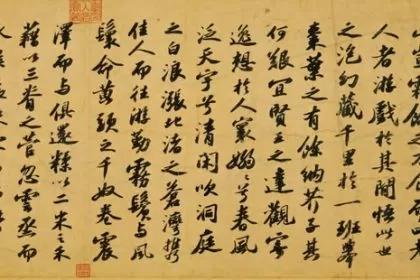 人者游戲於其間悟此世
之泡幻藏千里於一班舉
棗葉之有餘納芥子其
何艱宜賢王之達觀寄
逸想於人寰嫋嫋兮春風
泛天宇兮清閑吹洞庭
之白浪漲北渚之蒼灣攜
佳人而往游勤霧鬢與風
鬟命黃頭之千奴卷震
澤而与俱還糅以二米之禾
藉以三脊之菅忽雲烝而